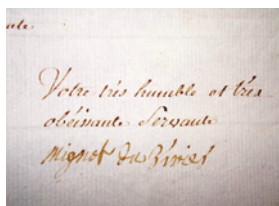 Votre très humble et très
obéissante Servante
Mignot